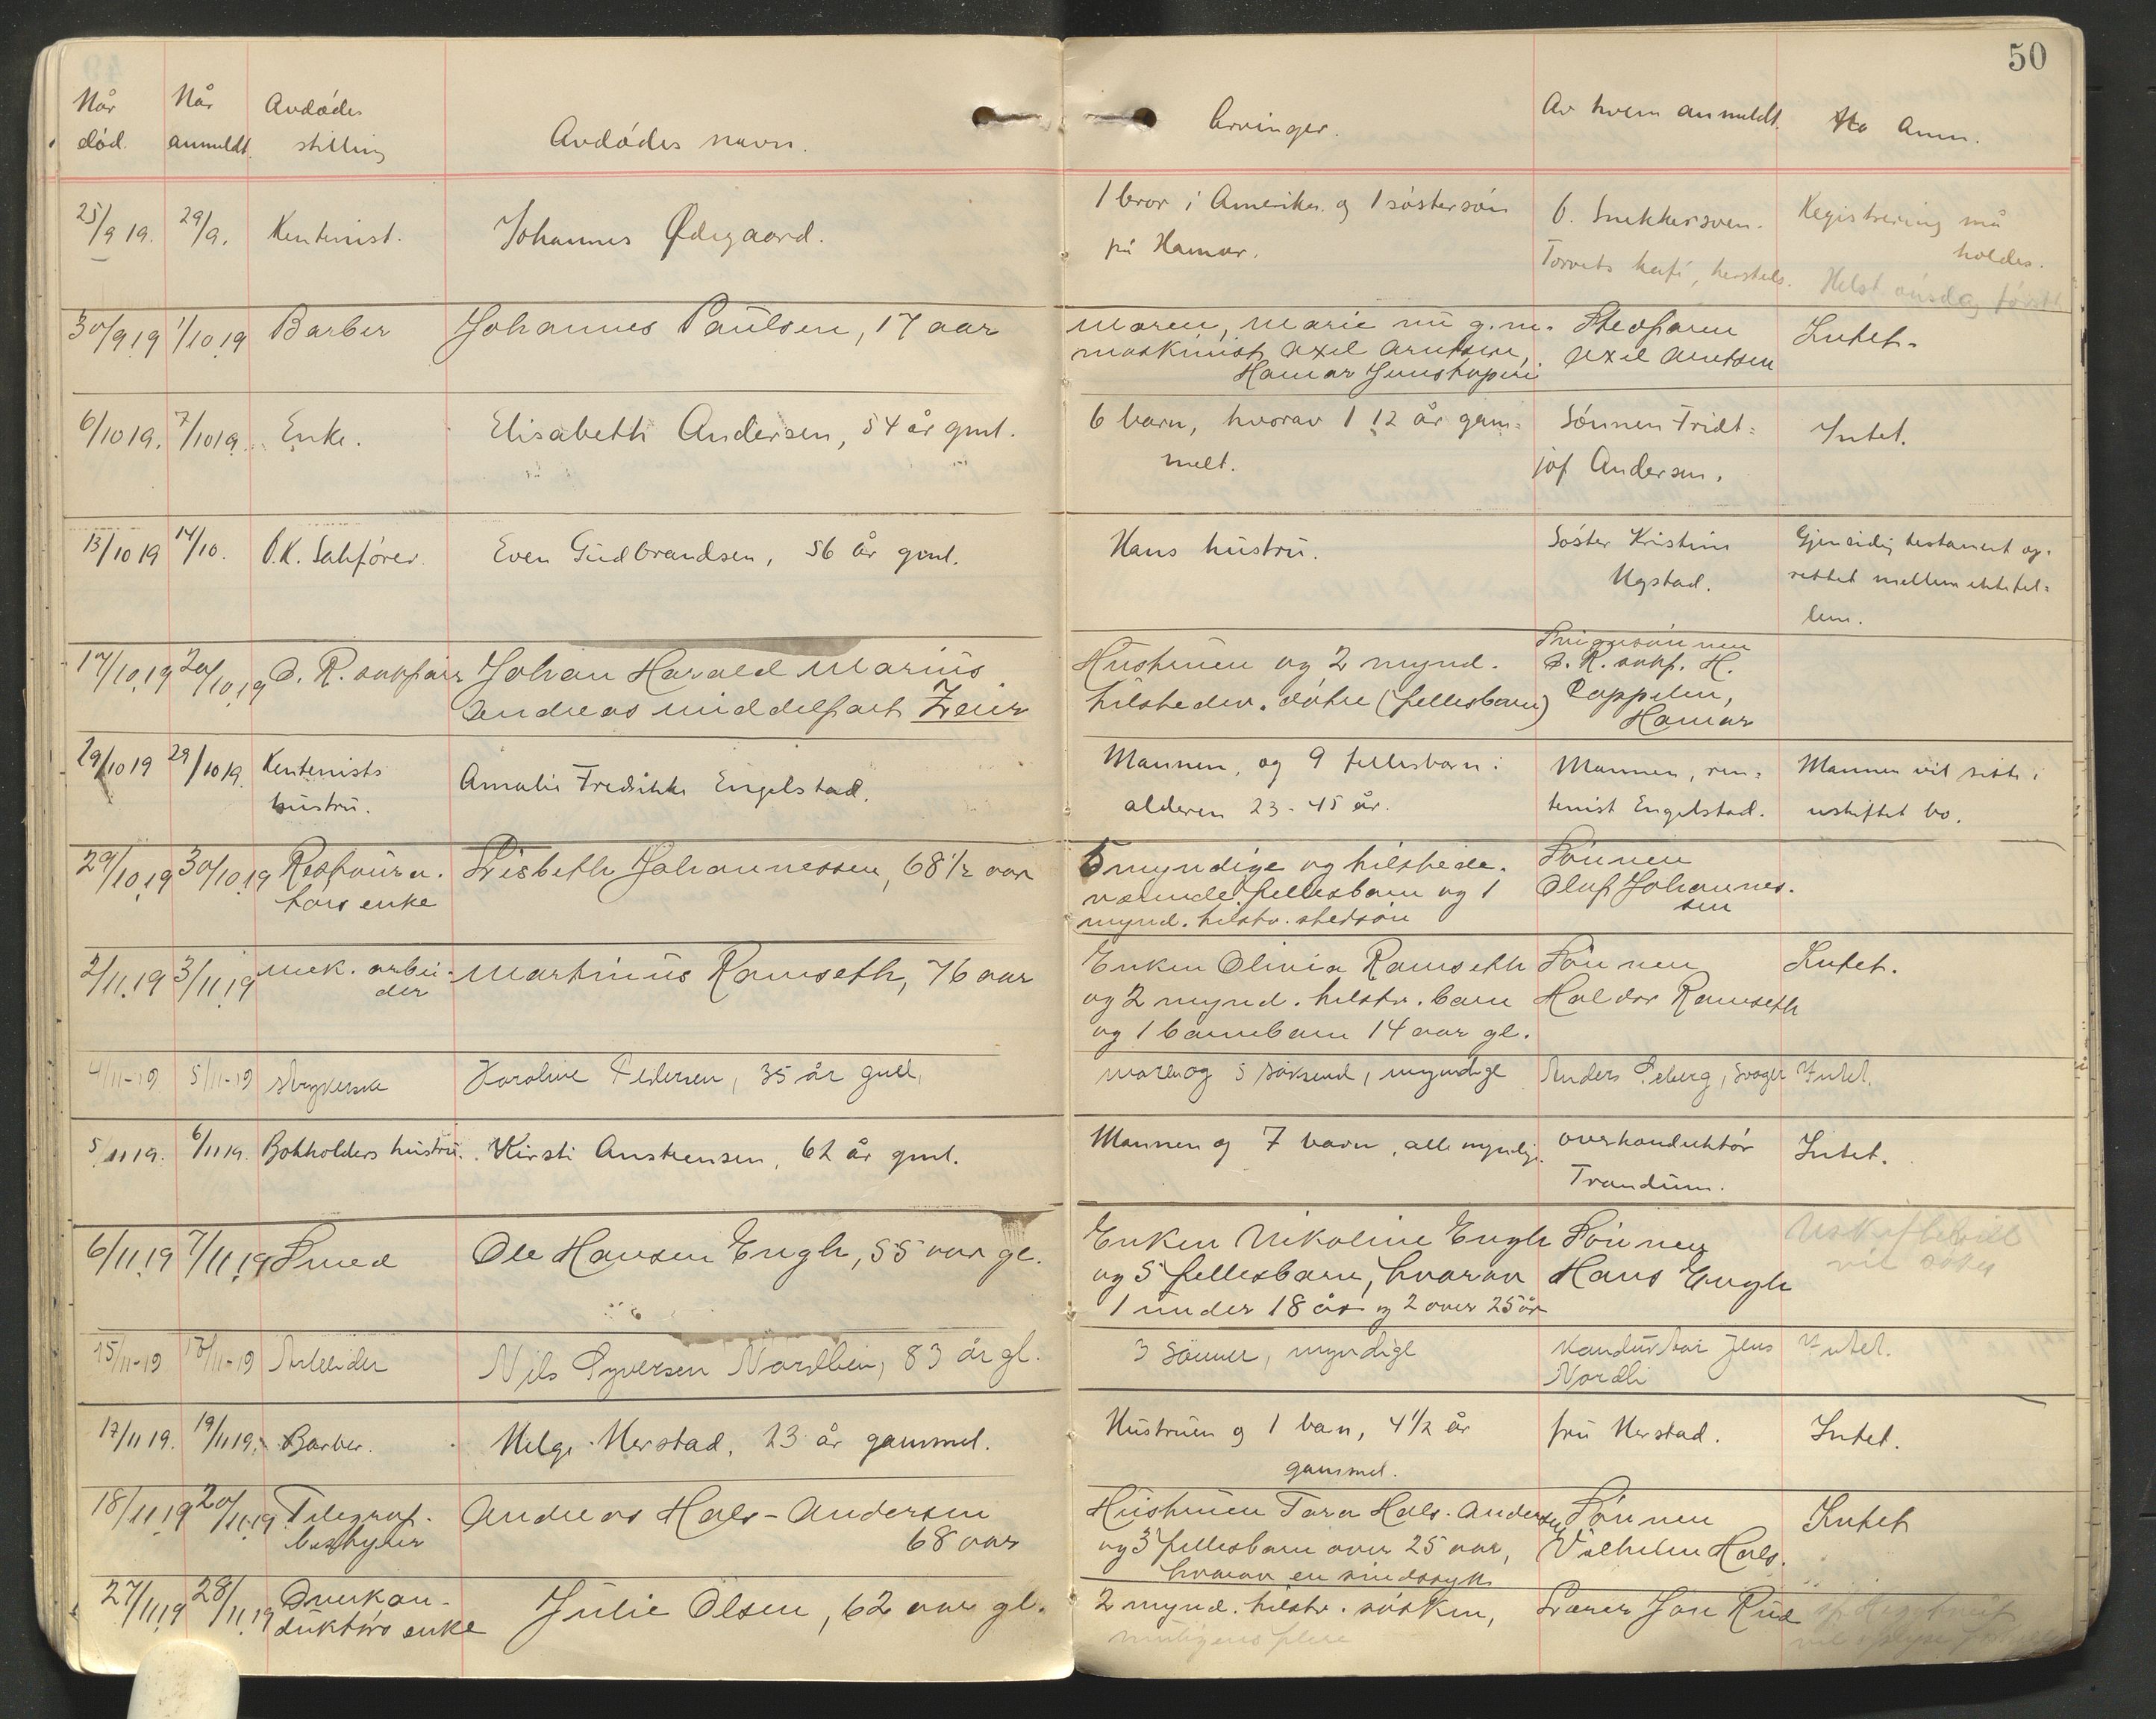 50
Når død. Når anmeldt. Avdødes stilling Avdødes navn. Arvinger. Av hvem anmeldt. Anm.
25/9 19. 29/9. Rentenist. Johannes Ødegaard. 1 bror i Amerika og 1 søstersøn
på Hamar.
C. Snekkersven.
Torvets kafé,
Registrering må
holdes.
Helst onsdag først
30/9 19 1/10 19 Barber Johannes Paulsen, 17 aar
Moren, Marie nu g.m.
maskinist Axel Arntsen,
Hamar
Stedfaren
Axel Arntsen
Intet.
6/10 19. 7/10 19. Enke. Elisabeth Andersen, 54 år gml.
6 barn, hvorav 1 12 år gam=
melt.
Sønnen Fridt=
jof Andersen.
Intet.
13/10 19 14/10. O.R. Sakfører. Even Gudbrandsen, 56 år gml.
Hans hustru.
Søster Kristine
Ugstad.
Gjensidig testament op=
rettet mellem ektefel=
lene.
17/10 19 20/10 19 O. R. sakfører Johan Harald Marius
Andreas Middelfart Zeier
Hustruen og 2 mynd.
tilstedev. døtre (fellesbarn)
Svigersønnen
O. R. sakf. H.
Cappelen,
Hamar
29/10 19 29/10 19. Rentenists
hustru.
Amalie Fredrikke Engelstad.
Mannen, og 9 fellesbarn i
alderen 23-45 år.
Mannen, ren=
tenist Engelstad.
Mannen vil sitte i
uskiftet bo.
29/10 19 30/10 19 Restaura-
tørs enke
Lisbeth Johannessen, 68 1/2 aar
5 myndige og tilstede-
værende fellesbarn og 1
mynd. tilstv. stedsøn
Sønnen
Oluf Johannes-
sen
2/11 19 3/11 19 Mek. arbei-
der
Martinus Ramseth, 76 aar
Enken Olivia Ramseth
og 2 mynd. tilstv. barn
og 1 barnebarn 14 aar gl.
Sønnen
Haldor Ramseth
Intet.
4/11-19 5/11-19 strykerske Karoline Pedersen, 35 år gml,
moren og 5 søskend, myndige
Anders Seberg, svoger
Intet.
5/11 19. 6/11 19. Bokholders hustru. Kirsti Anstensen, 62 år gml.
Mannen og 7 barn, alle myndige.
overkonduktør
Trandum.
Intet.
6/11 19 7/11 19 Smed Ole Hansen Engh, 55 aar gl.
Enken Nikoline Engh
og 5 fellesbarn, hvorav
1 under 18 år og 2 over 25 år
Sønnen
Hans Engh
Uskiftebevill
vil søkes
15/11-19 18/11-19 Arbeider Nils Syversen Nordlien, 83 år gl.
3 sønner, myndige
Konduktør Jens
Nordli
Intet.
17/11 19. 19/11 19. Barber. Helge Herstad, 23 år gammel.
Hustruen og 1 barn, 4 1/2 år
gammel.
fru Herstad.
Intet.
18/11 19 20/11 19 Telegraf-
bestyrer
Andreas Hals-Andersen
68 aar
Hustruen Tora Hals-Andersen
og 3 fellesbarn over 25 aar,
hvorav en sindssyk
Sønnen
Vilhelm Hals.
Intet
27/11 19 28/11 19 Overkon-
duktørs enke
Julie Olsen, 62 aar gl.
2 mynd. tilstv. søsken,
muligens flere
Lærer Jon Rud